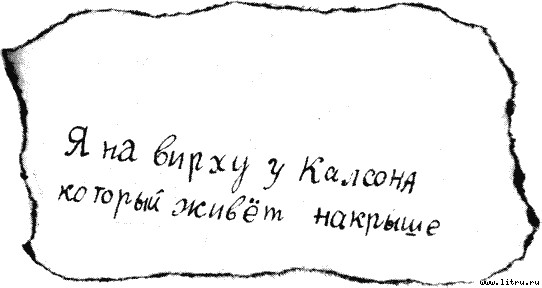 Я на вирху у Калсона
который живёт накрыше
www.litru.ru